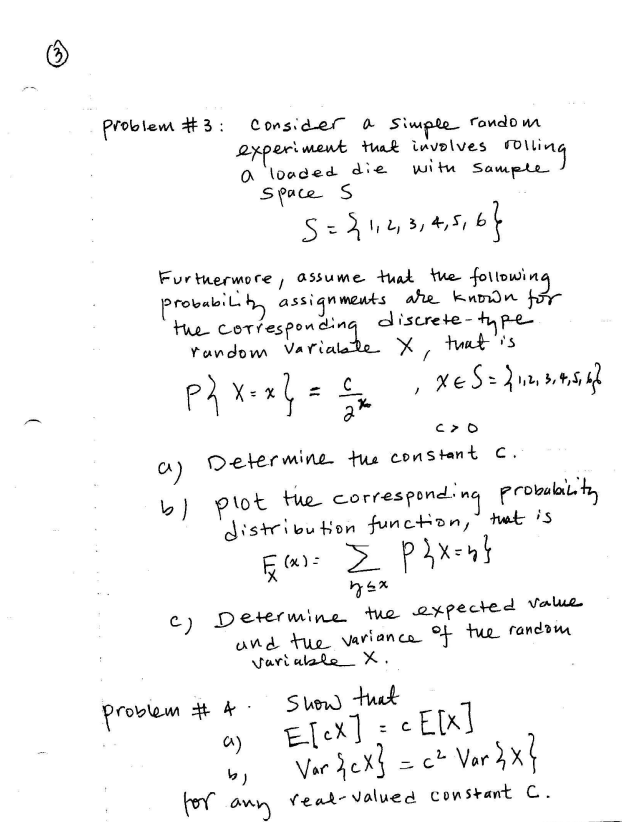 ③
Problem #3: Consider a simple random
experiment that involves rolling
a loaded die with sample
space S
S = {1, 2, 3, 4, 5, 6}
Furthermore, assume that the following
probability assignments are known for
the corresponding discrete-type
random variable X, that is
P{X=x} = c/2^x , x∈S={1,2,3,4,5,6}
c>0
a) Determine the constant c.
b) plot the corresponding probability
distribution function, that is
F_X(x) = Σ P{X=y}
y≤x
c) Determine the expected value
and the variance of the random
variable X.
problem #4. Show that
a) E[cX] = c E[X]
b) Var{cX} = c² Var{X}
for any real-valued constant c.